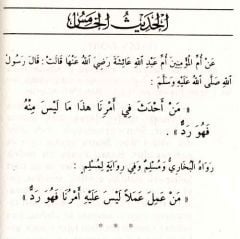 الحديث الخامس
عَنْ أُمِّ الْمُؤْمِنِينَ أُمِّ عَبْدِ اللهِ عَائِشَةَ رَضِيَ اللهُ عَنْهَا قَالَتْ : قَالَ رَسُولُ
اللهِ صَلَّى اللهُ عَلَيْهِ وَسَلَّمَ :
« مَنْ أَحْدَثَ فِي أَمْرِنَا هذَا مَا لَيْسَ مِنْهُ
فَهُوَ رَدٌّ » .
رَوَاهُ الْبُخَارِيُّ وَمُسْلِمٌ وَفِي رِوَايَةٍ لِمُسْلِمٍ :
« مَنْ عَمِلَ عَمَلاً لَيْسَ عَلَيْهِ أَمْرُنَا فَهُوَ رَدٌّ »
* * *